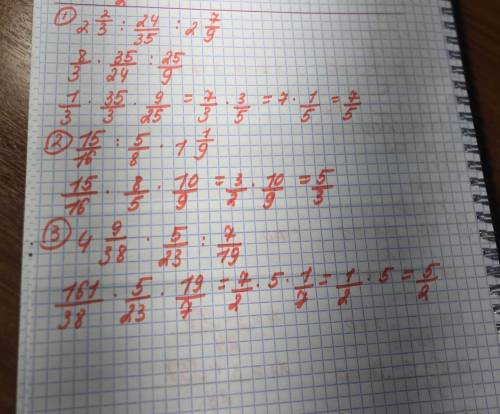 ① 2 2/3 : 24/35 : 2 7/9
8/3 · 35/24 : 25/9
1/3 · 35/3 · 9/25 = 7/3 · 3/5 = 7 · 1/5 = 7/5
② 15/16 : 5/8 · 1 1/9
15/16 · 8/5 · 10/9 = 3/2 · 10/9 = 5/3
③ 4 9/38 · 5/23 : 7/19
161/38 · 5/23 · 19/7 = 7/2 · 5 · 1/7 = 1/2 · 5 = 5/2